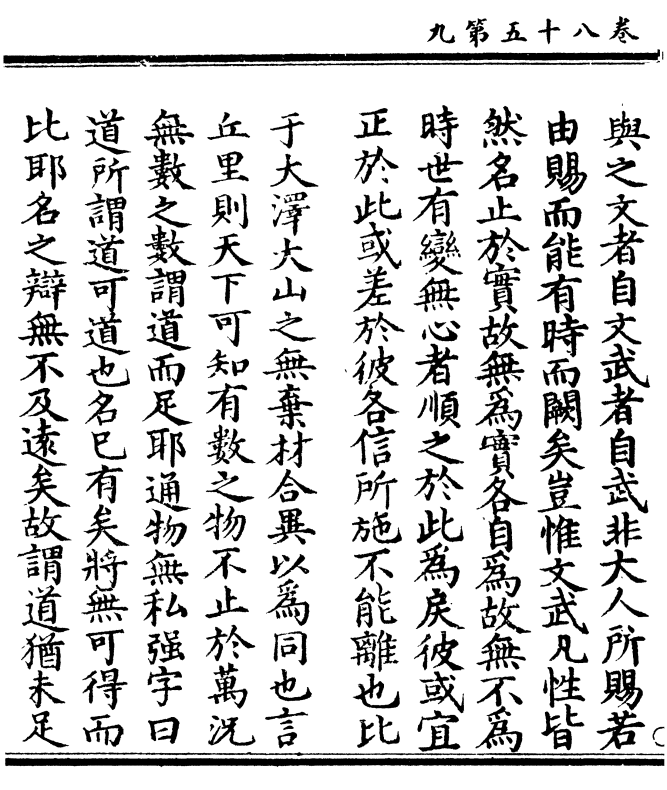 卷八十五第九
與之文者自文武者自武非大人所賜若
由賜而能有時而闕矣豈惟文武凡性皆
然名止於實故無為實各自為故無不為
時世有變無心者順之於此為戾彼或宜
正於此或差於彼各信所施不能離也比
于大澤大山之無棄材合異以為同也言
丘里則天下可知有數之物不止於萬況
無數之數謂道而足耶通物無私强字曰
道所謂道可道也名已有矣將無可得而
比耶名之辯無不及遠矣故謂道猶未足